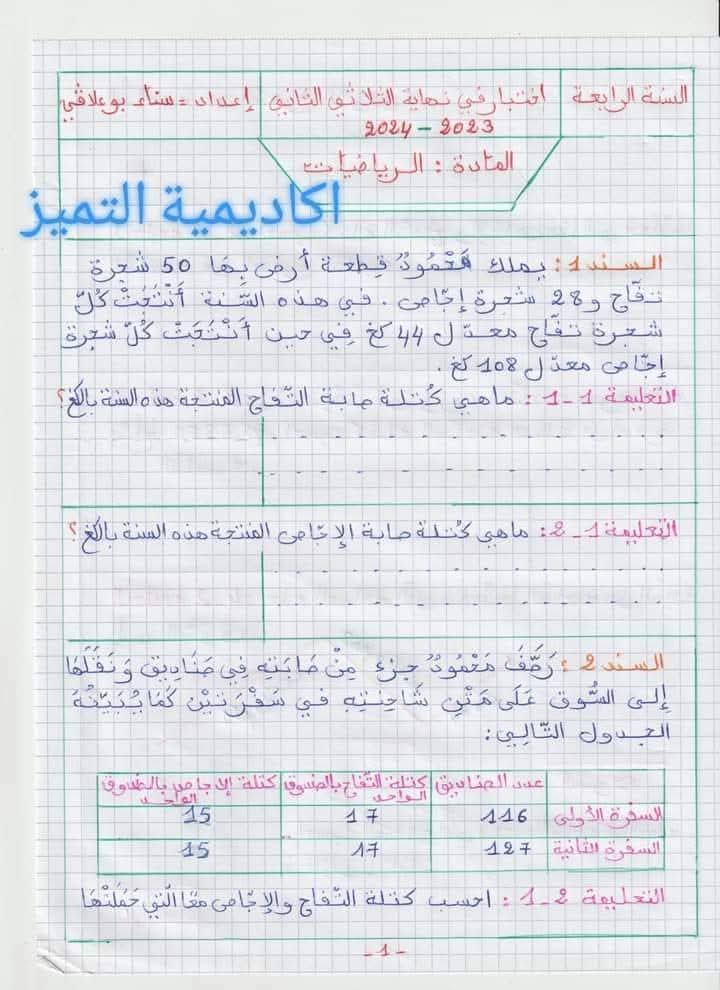 السنة الرابعة
اختبار في نهاية الثلاثي الثاني
2023 - 2024
إعداد = سناء بوعلاقي
المادة : الرياضيات
اكاديمية التميز
السند 1: يملك مَحْمُودُ قطعة أرض بها 50 شجرة
تفّاح و 28 شجرة إجّاص . في هذه السّنة أَنْتَجَتْ كُلّ
شجرة تفّاح معدّل 44 كغ في حين أَنْتَجَتْ كُلّ شجرة
إجّاص معدّل 108 كغ .
التعليمة 1-1 : ماهي كُتلة صابة التّفاح المنتجة هذه السنة بالكغ؟
التعليمة 1-2: ماهي كُتلة صابة الإجّاص المنتجة هذه السنة بالكغ؟
السند 2: رَصَّفَ مَحْمُودُ جزء مِنْ صَابَتِهِ فِي صَنَادِيق وَنَقَلَهَا
إلى السُّوق عَلَى مَتْنِ شَاحِنتِهِ في سَفْرَتيْن كَمَا يُبَيِّنُهُ
الجدول التّالي:
عدد الصناديق | كتلة التّفاح بالصندوق الواحد | كتلة الإجاص بالصندوق الواحد
السفرة الأولى | 116 | 17 | 15
السفرة الثانية | 127 | 17 | 15
التعليمة 2-1 : احسب كتلة التّفاح والإجّاص معًا الّتي حَمَلَتْهَا
-1-